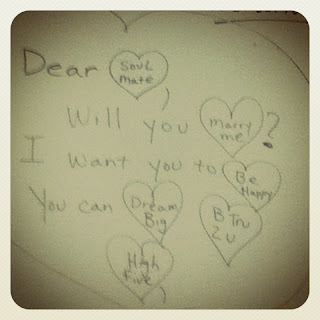 Dear Soul Mate,
Will you Marry me?
I want you to Be Happy
You can Dream Big B Tru 2 U
High Five,